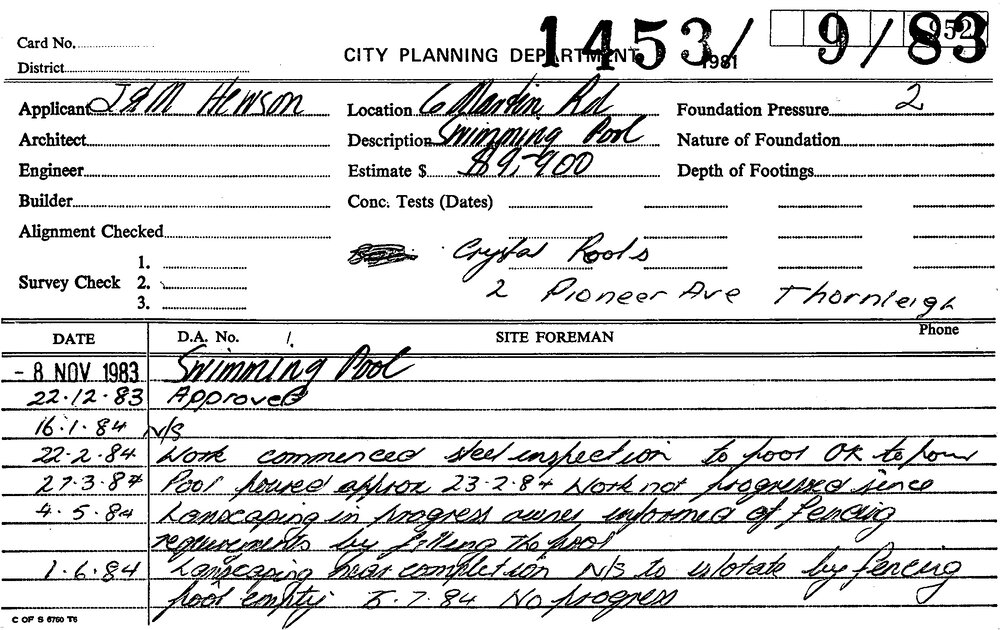 Card No.
District
CITY PLANNING DEPARTMENT 1453/9/83
1981
952
Applicant J & M Hewson Location 6 Martin Rd Foundation Pressure 2
Architect Description Swimming Pool Nature of Foundation
Engineer Estimate $ $9,900 Depth of Footings
Builder Conc. Tests (Dates)
Alignment Checked
Crystal Pools
Survey Check 1.
2.
3.
2 Pioneer Ave Thornleigh
DATE D.A. No. SITE FOREMAN Phone
- 8 NOV 1983 Swimming Pool
22.12.83 Approved
16.1.84 N/S
22.2.84 Work commenced steel inspection to pool OK to pour
27.3.84 Pool poured approx 23.2.84 Work not progressed since
4.5.84 Landscaping in progress owner informed of fencing
requirements by filling the pool
1.6.84 Landscaping near completion N/S to isolate by fencing
pool empty. 5.7.84 No progress
C OF S 6750 T6